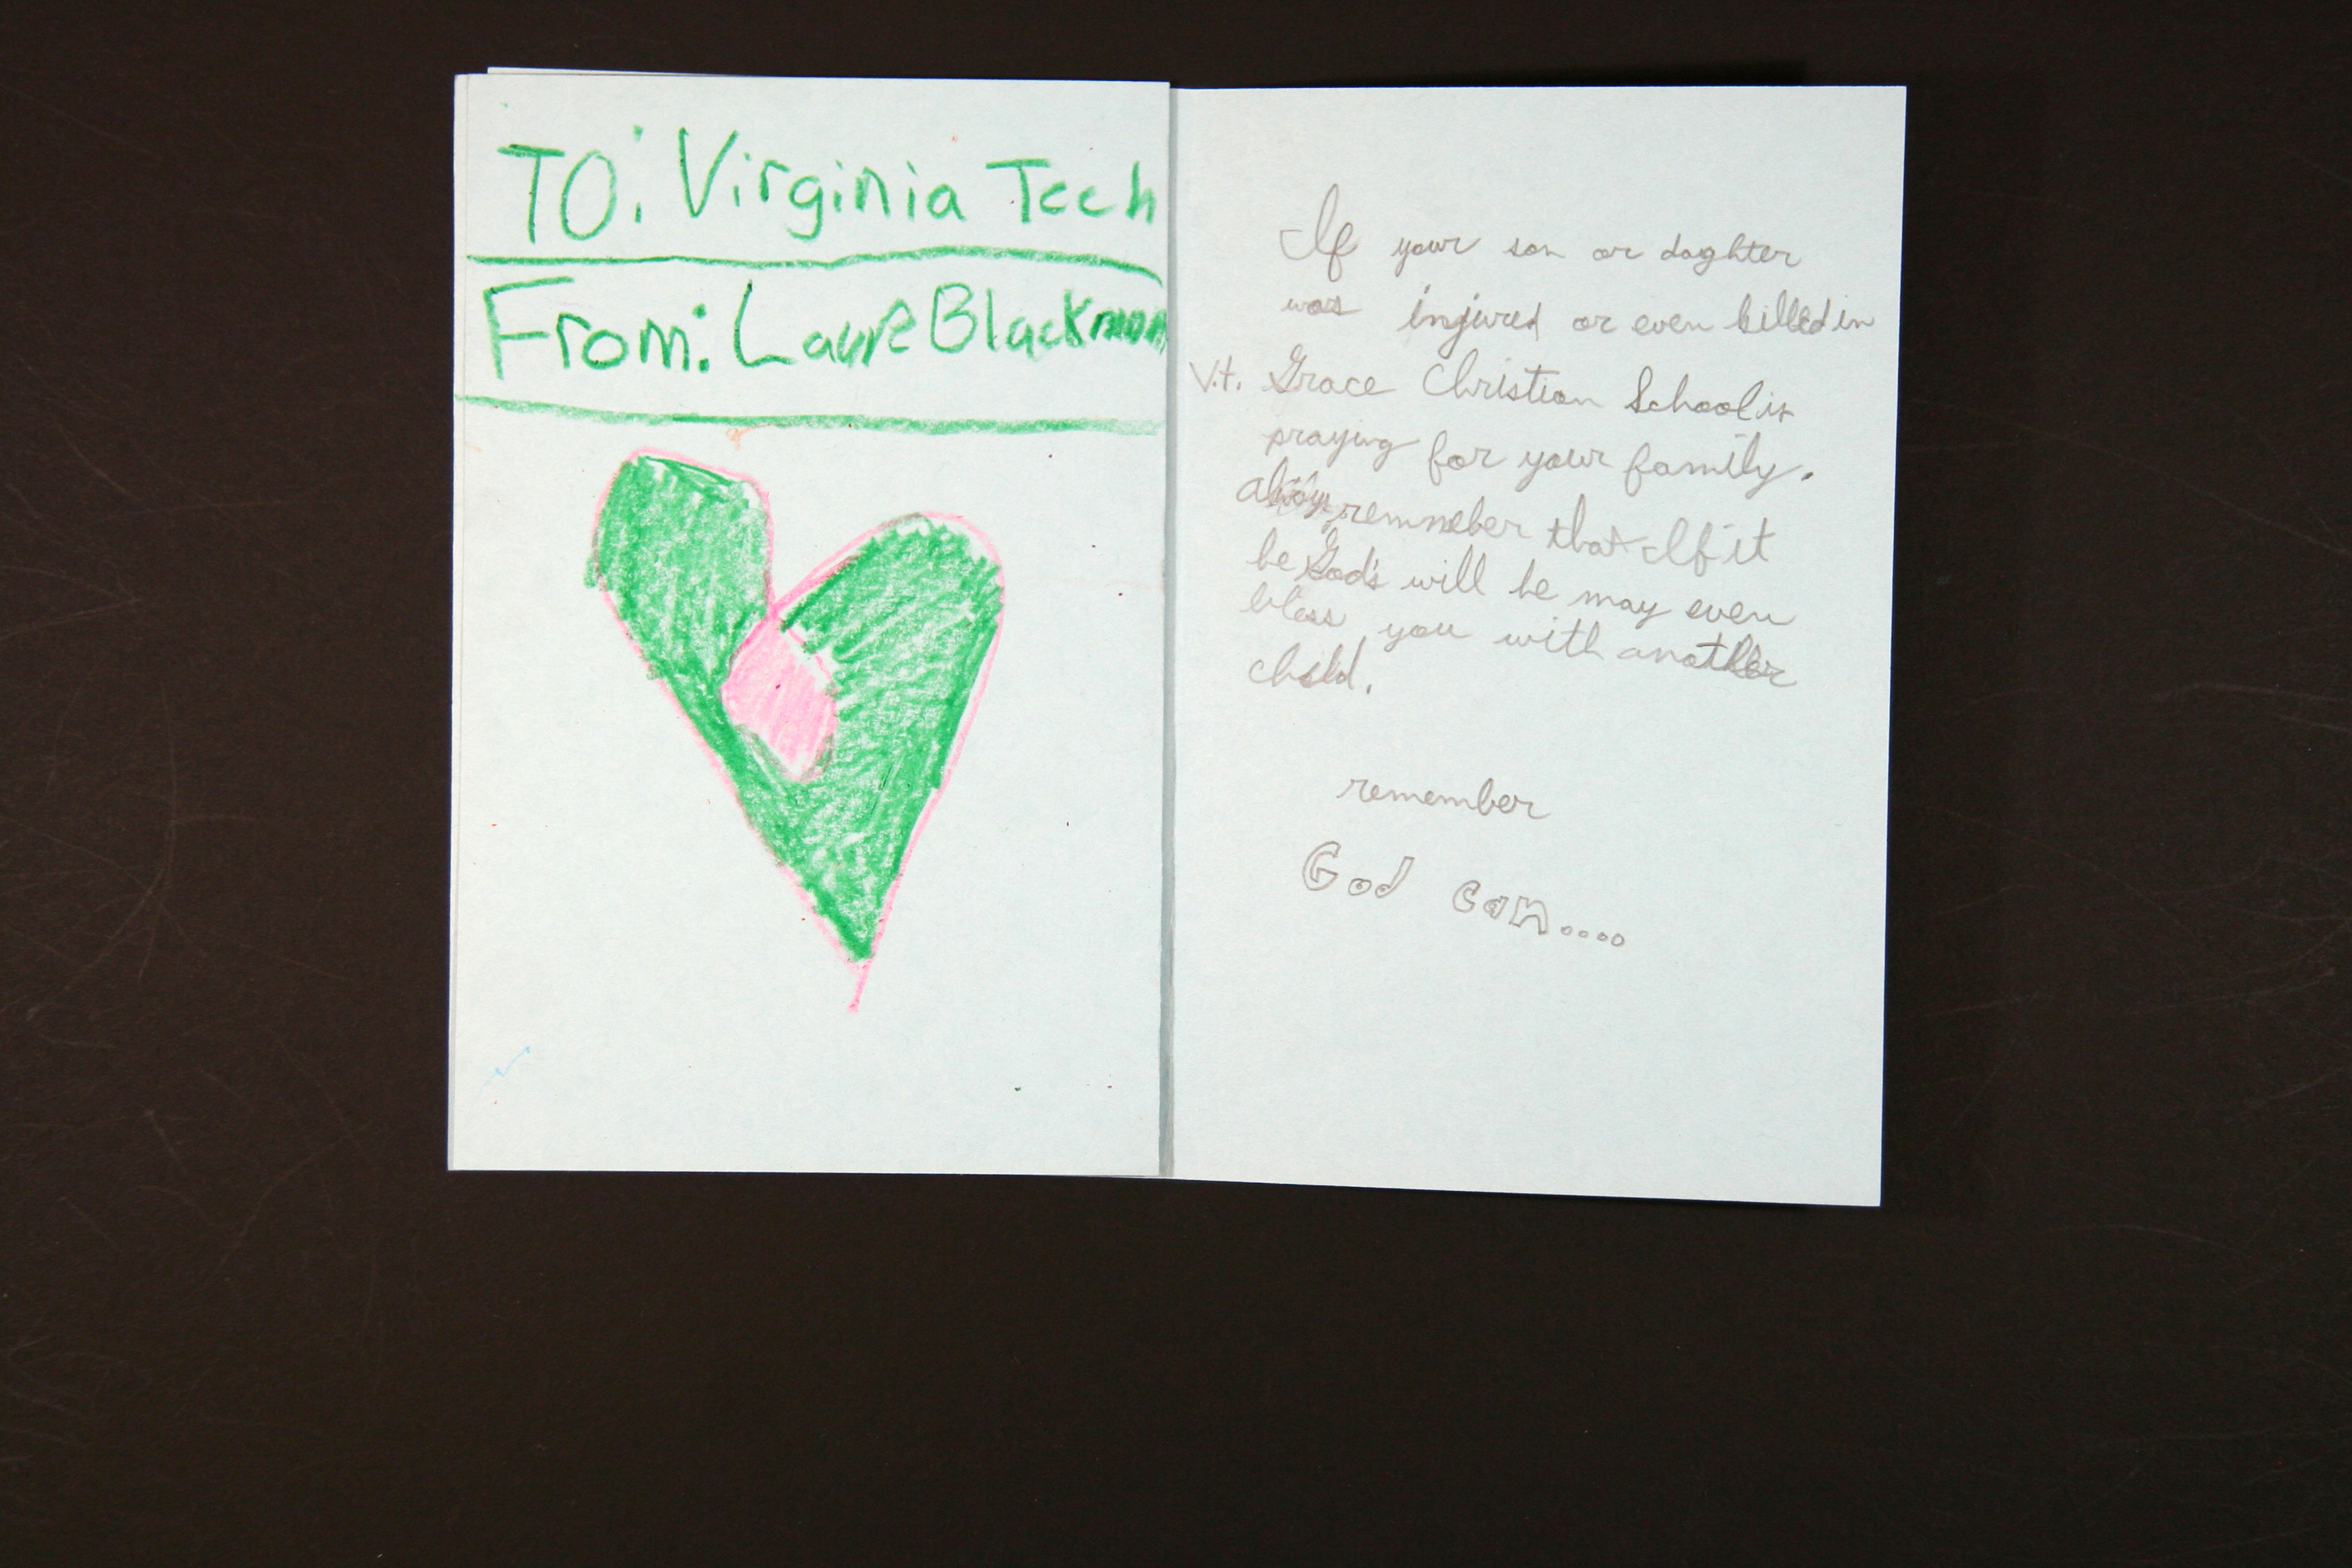 TO: Virginia Tech
From: Laure Blackmon
If your son or daghter
was injured or even killed in
V.t. Grace Christian School is
praying for your family.
always remneber that If it
be God's will he may even
bless you with another
child.
remember
God can....